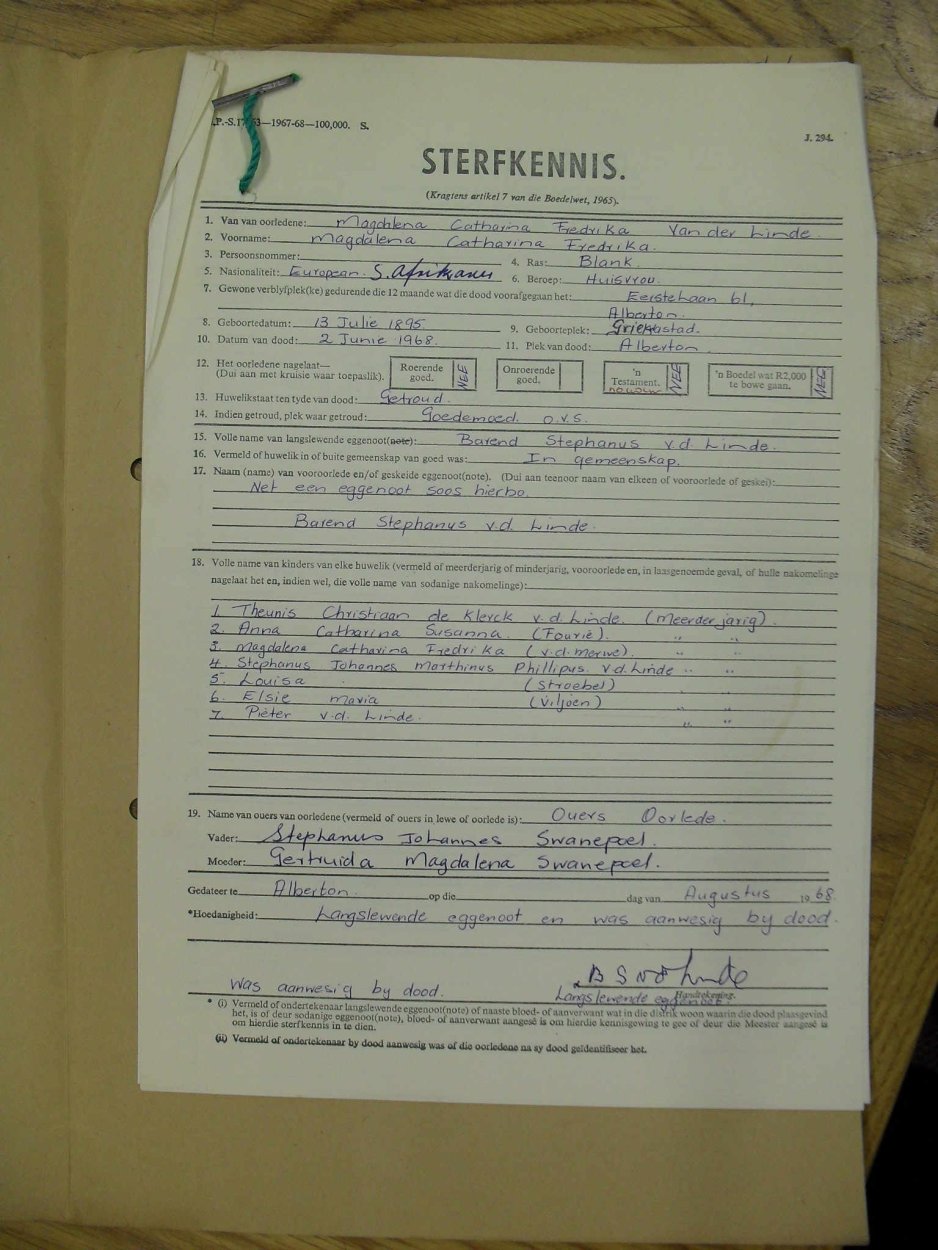 —1967-68—100,000. S.
J. 294.
STERFKENNIS.
(Kragtens artikel 7 van die Boedelwet, 1965).
1. Van van oorledene: Magdalena Catharina Fredrika Van der Linde.
2. Voorname: Magdalena Catharina Fredrika.
3. Persoonsnommer: 4. Ras: Blank
5. Nasionaliteit: European. S. Afrikaans 6. Beroep: Huisvrou.
7. Gewone verblyfplek(ke) gedurende die 12 maande wat die dood voorafgegaan het: Eerstelaan 61,
Alberton.
8. Geboortedatum: 13 Julie 1895 9. Geboorteplek: Griekwastad.
10. Datum van dood: 2 Junie 1968. 11. Plek van dood: Alberton.
12. Het oorledene nagelaat— Roerende goed. NEE Onroerende goed. 'n Testament. NEE 'n Boedel wat R2,000 te bowe gaan. NEE
(Dui aan met kruisie waar toepaslik).
13. Huwelikstaat ten tyde van dood: Getroud.
14. Indien getroud, plek waar getroud: Goedemoed O.V.S.
15. Volle name van langslewende eggenoot(note): Barend Stephanus v.d. Linde.
16. Vermeld of huwelik in of buite gemeenskap van goed was: In gemeenskap.
17. Naam (name) van vooroorlede en/of geskeide eggenoot(note). (Dui aan teenoor naam van elkeen of vooroorlede of geskei):
Net een eggenoot soos hierbo.
Barend Stephanus v.d. Linde.
18. Volle name van kinders van elke huwelik (vermeld of meerderjarig of minderjarig, vooroorlede en, in laasgenoemde geval, of hulle nakomelinge
nagelaat het en, indien wel, die volle name van sodanige nakomelinge):
1. Theunis Christiaan de Klerck v.d. Linde. (Meerderjarig).
2. Anna Catharina Susanna. (Fourie). " "
3. Magdalena Catharina Fredrika (v.d. merwe). " "
4. Stephanus Johannes Marthinus Phillipus. v.d. Linde " "
5. Louisa (Stroebel)
6. Elsie Maria (Viljoen) " "
7. Pieter v.d. Linde. " "
19. Name van ouers van oorledene (vermeld of ouers in lewe of oorlede is): Ouers Oorlede.
Vader: Stephanus Johannes Swanepoel.
Moeder: Gertruida Magdalena Swanepoel.
Gedateer te Alberton. op die dag van Augustus 1968.
*Hoedanigheid: Langslewende eggenoot en was aanwesig by dood.
B S vd Linde
Was aanwesig by dood. Langslewende eggenoot.
Handtekening.
* (i) Vermeld of ondertekenaar langslewende eggenoot(note) of naaste bloed- of aanverwant wat in die distrik woon waarin die dood plaasgevind
het, is of deur sodanige eggenoot(note), bloed- of aanverwant aangesê is om hierdie kennisgewing te gee of deur die Meester aangesê is
om hierdie sterfkennis in te dien.
(ii) Vermeld of ondertekenaar by dood aanwesig was of die oorledene na sy dood geïdentifiseer het.